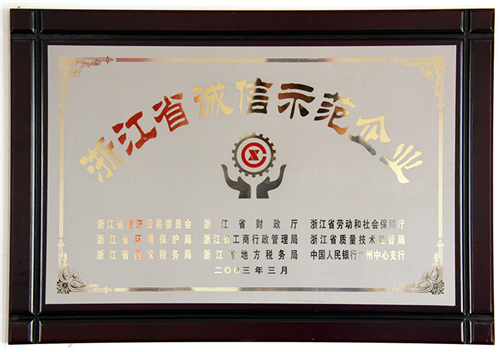 浙江省诚信示范企业
浙江省经济贸易委员会 浙江省财政厅 浙江省劳动和社会保障厅
浙江省环境保护局 浙江省工商行政管理局 浙江省质量技术监督局
浙江省国家税务局 浙江省地方税务局 中国人民银行杭州中心支行
二〇〇三年三月